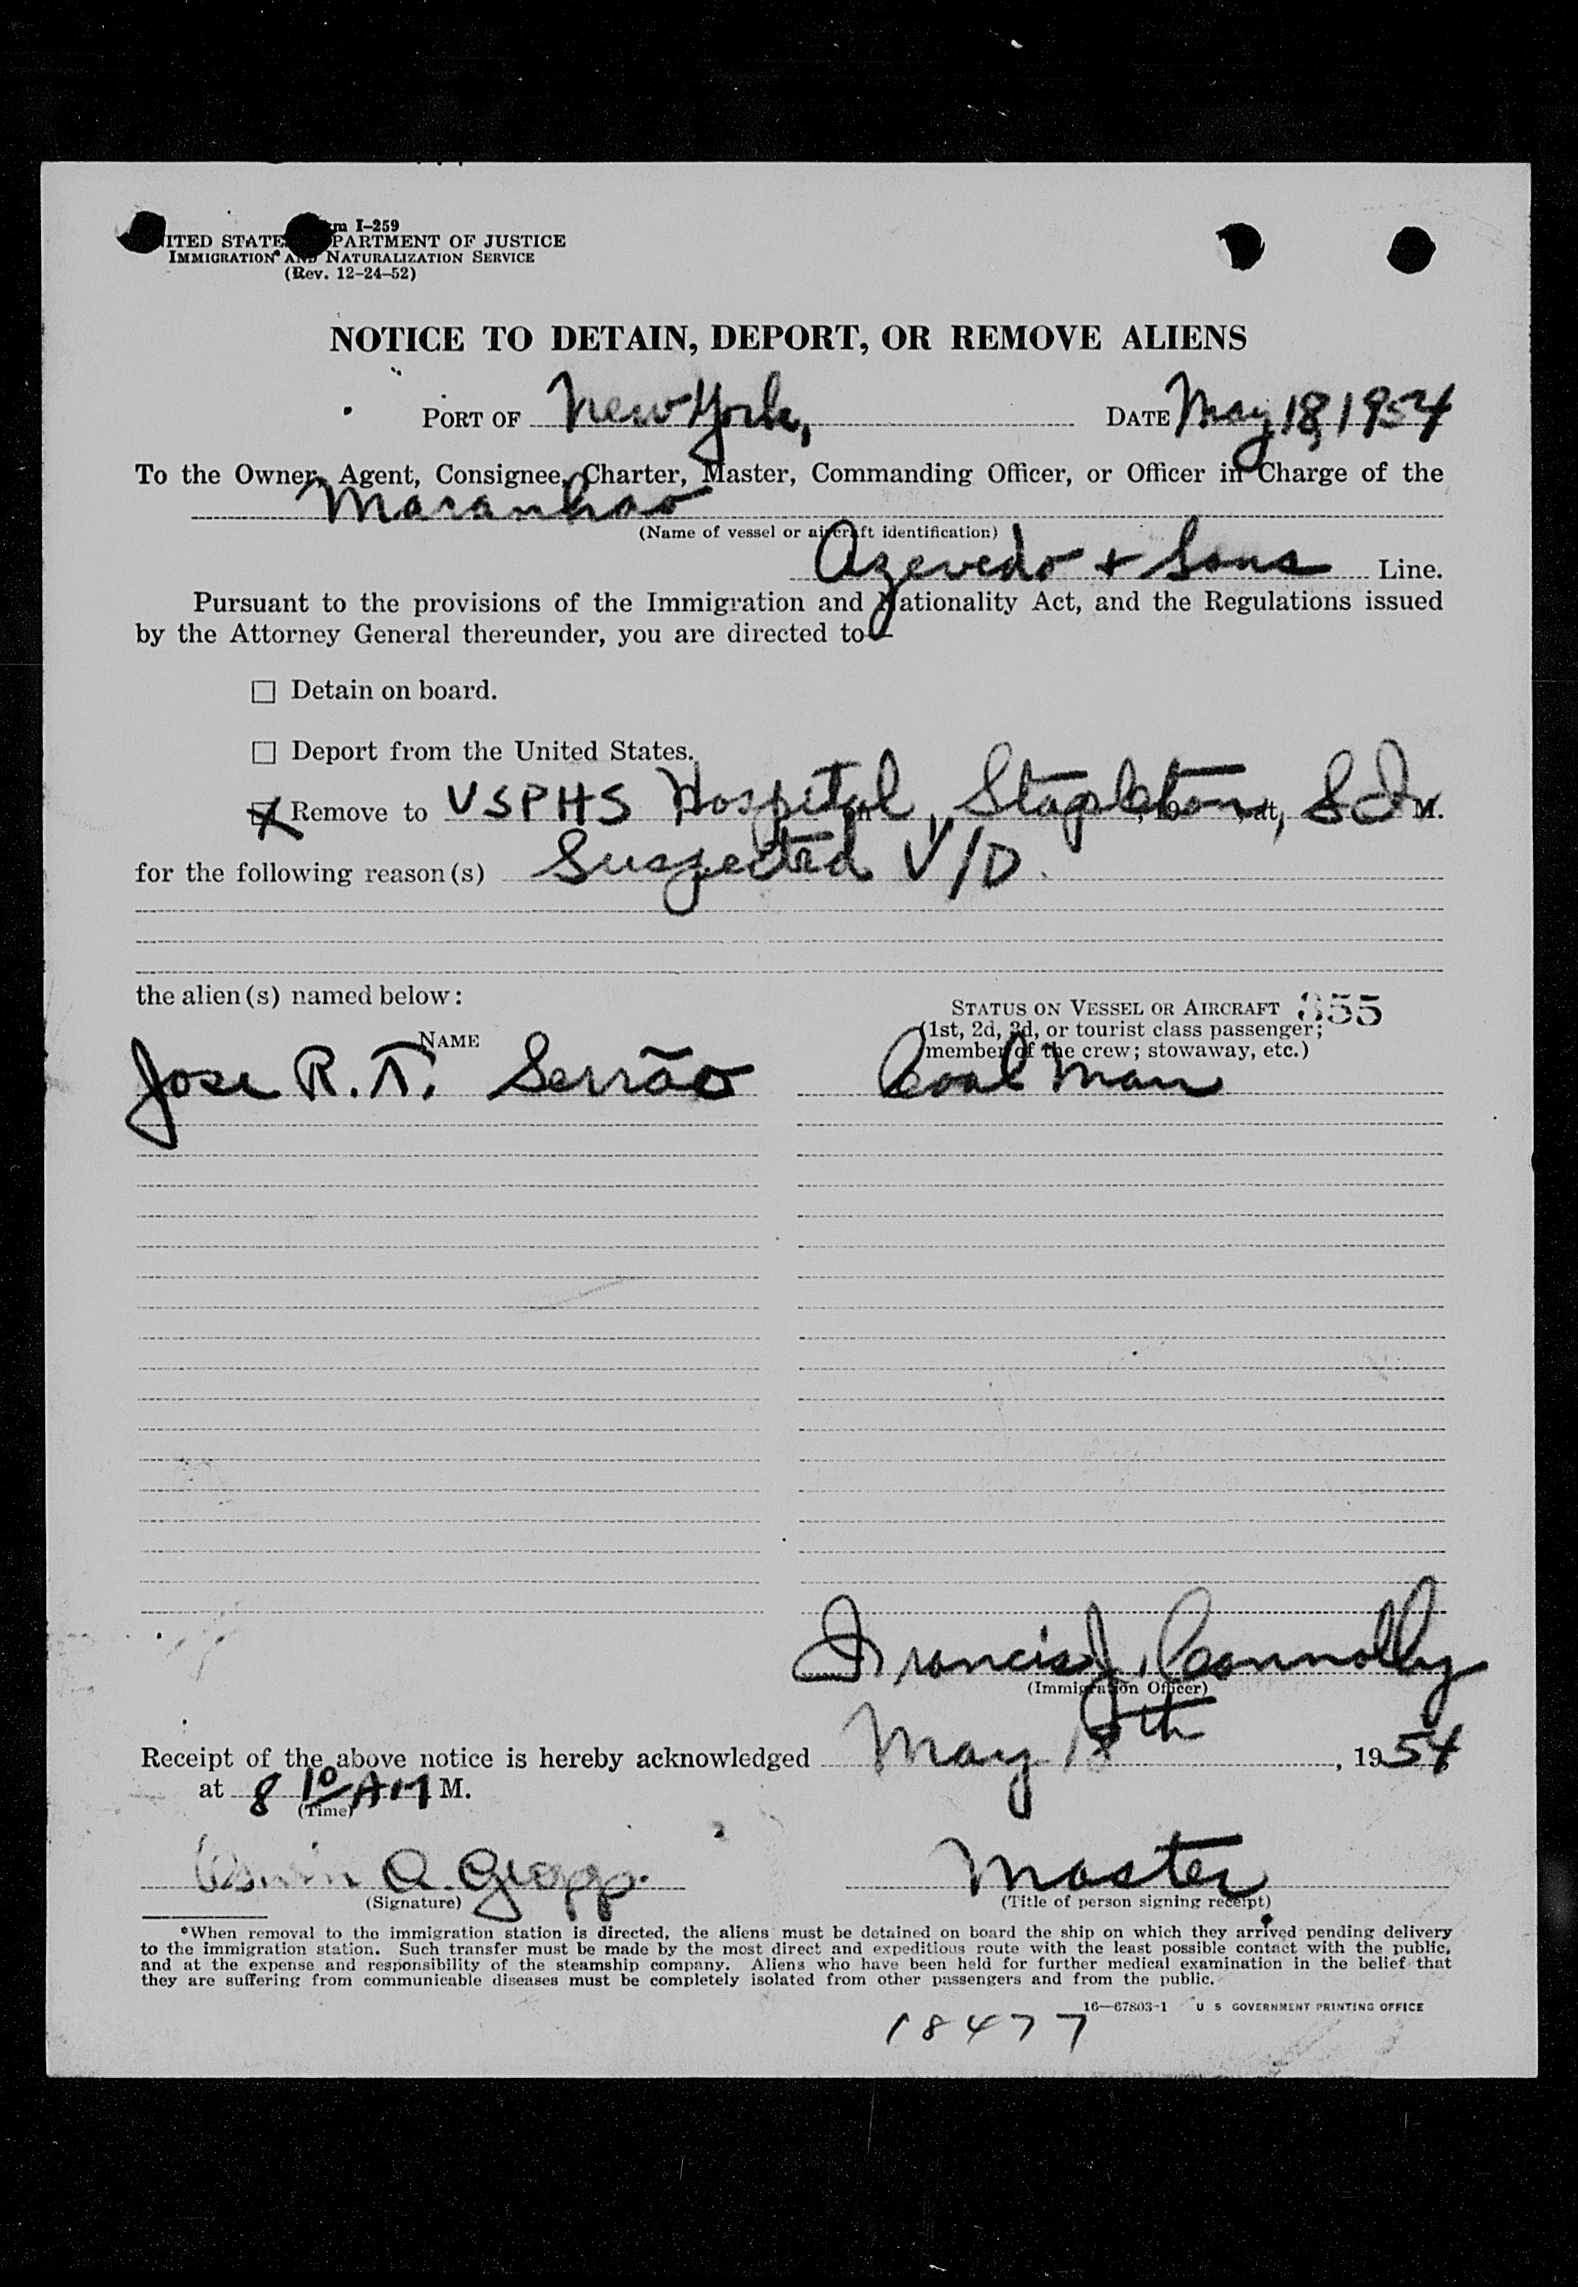 m I-259
ITED STATE PARTMENT OF JUSTICE
IMMIGRATION AND NATURALIZATION SERVICE
(Rev. 12-24-52)
NOTICE TO DETAIN, DEPORT, OR REMOVE ALIENS
PORT OF New York, DATE May 18, 1954
To the Owner, Agent, Consignee, Charter, Master, Commanding Officer, or Officer in Charge of the
Maranhao
(Name of vessel or aircraft identification)
Azevedo + Sons Line.
Pursuant to the provisions of the Immigration and Nationality Act, and the Regulations issued
by the Attorney General thereunder, you are directed to—
☐ Detain on board.
☐ Deport from the United States.
☒ Remove to USPHS Hospital, Stapleton, S.I. M.
for the following reason(s) Suspected V/D.
the alien(s) named below:
STATUS ON VESSEL OR AIRCRAFT 355
NAME
(1st, 2d, 3d, or tourist class passenger;
member of the crew; stowaway, etc.)
Jose R. T. Serrão Coal Man
Francis J. Connolly
(Immigration Officer)
Receipt of the above notice is hereby acknowledged May 18th, 1954
at 8 10 AM M.
(Time)
A. Master
(Signature) (Title of person signing receipt)
*When removal to the immigration station is directed, the aliens must be detained on board the ship on which they arrived pending delivery
to the immigration station. Such transfer must be made by the most direct and expeditious route with the least possible contact with the public,
and at the expense and responsibility of the steamship company. Aliens who have been held for further medical examination in the belief that
they are suffering from communicable diseases must be completely isolated from other passengers and from the public.
16—67803-1 U S GOVERNMENT PRINTING OFFICE
18477